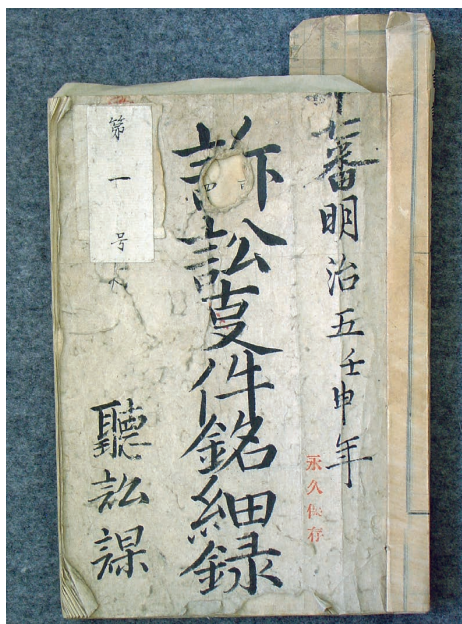 番明治五壬申年
永久保存
訴訟叓件銘細録
聽訟課
第一号